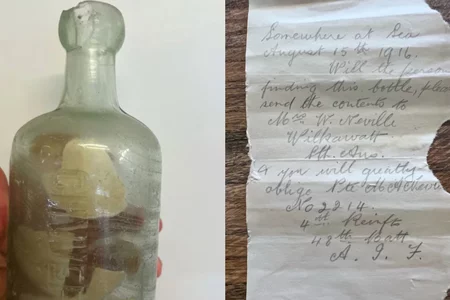 Somewhere at Sea
August 15th 1916.
Will the person
finding this bottle, please
send the contents to
Mrs W. Neville
Wilkawatt
Sth. Aus.
& you will greatly
oblige Pte
No 2214.
4th Reinfts
48th Batt
A. I. F.